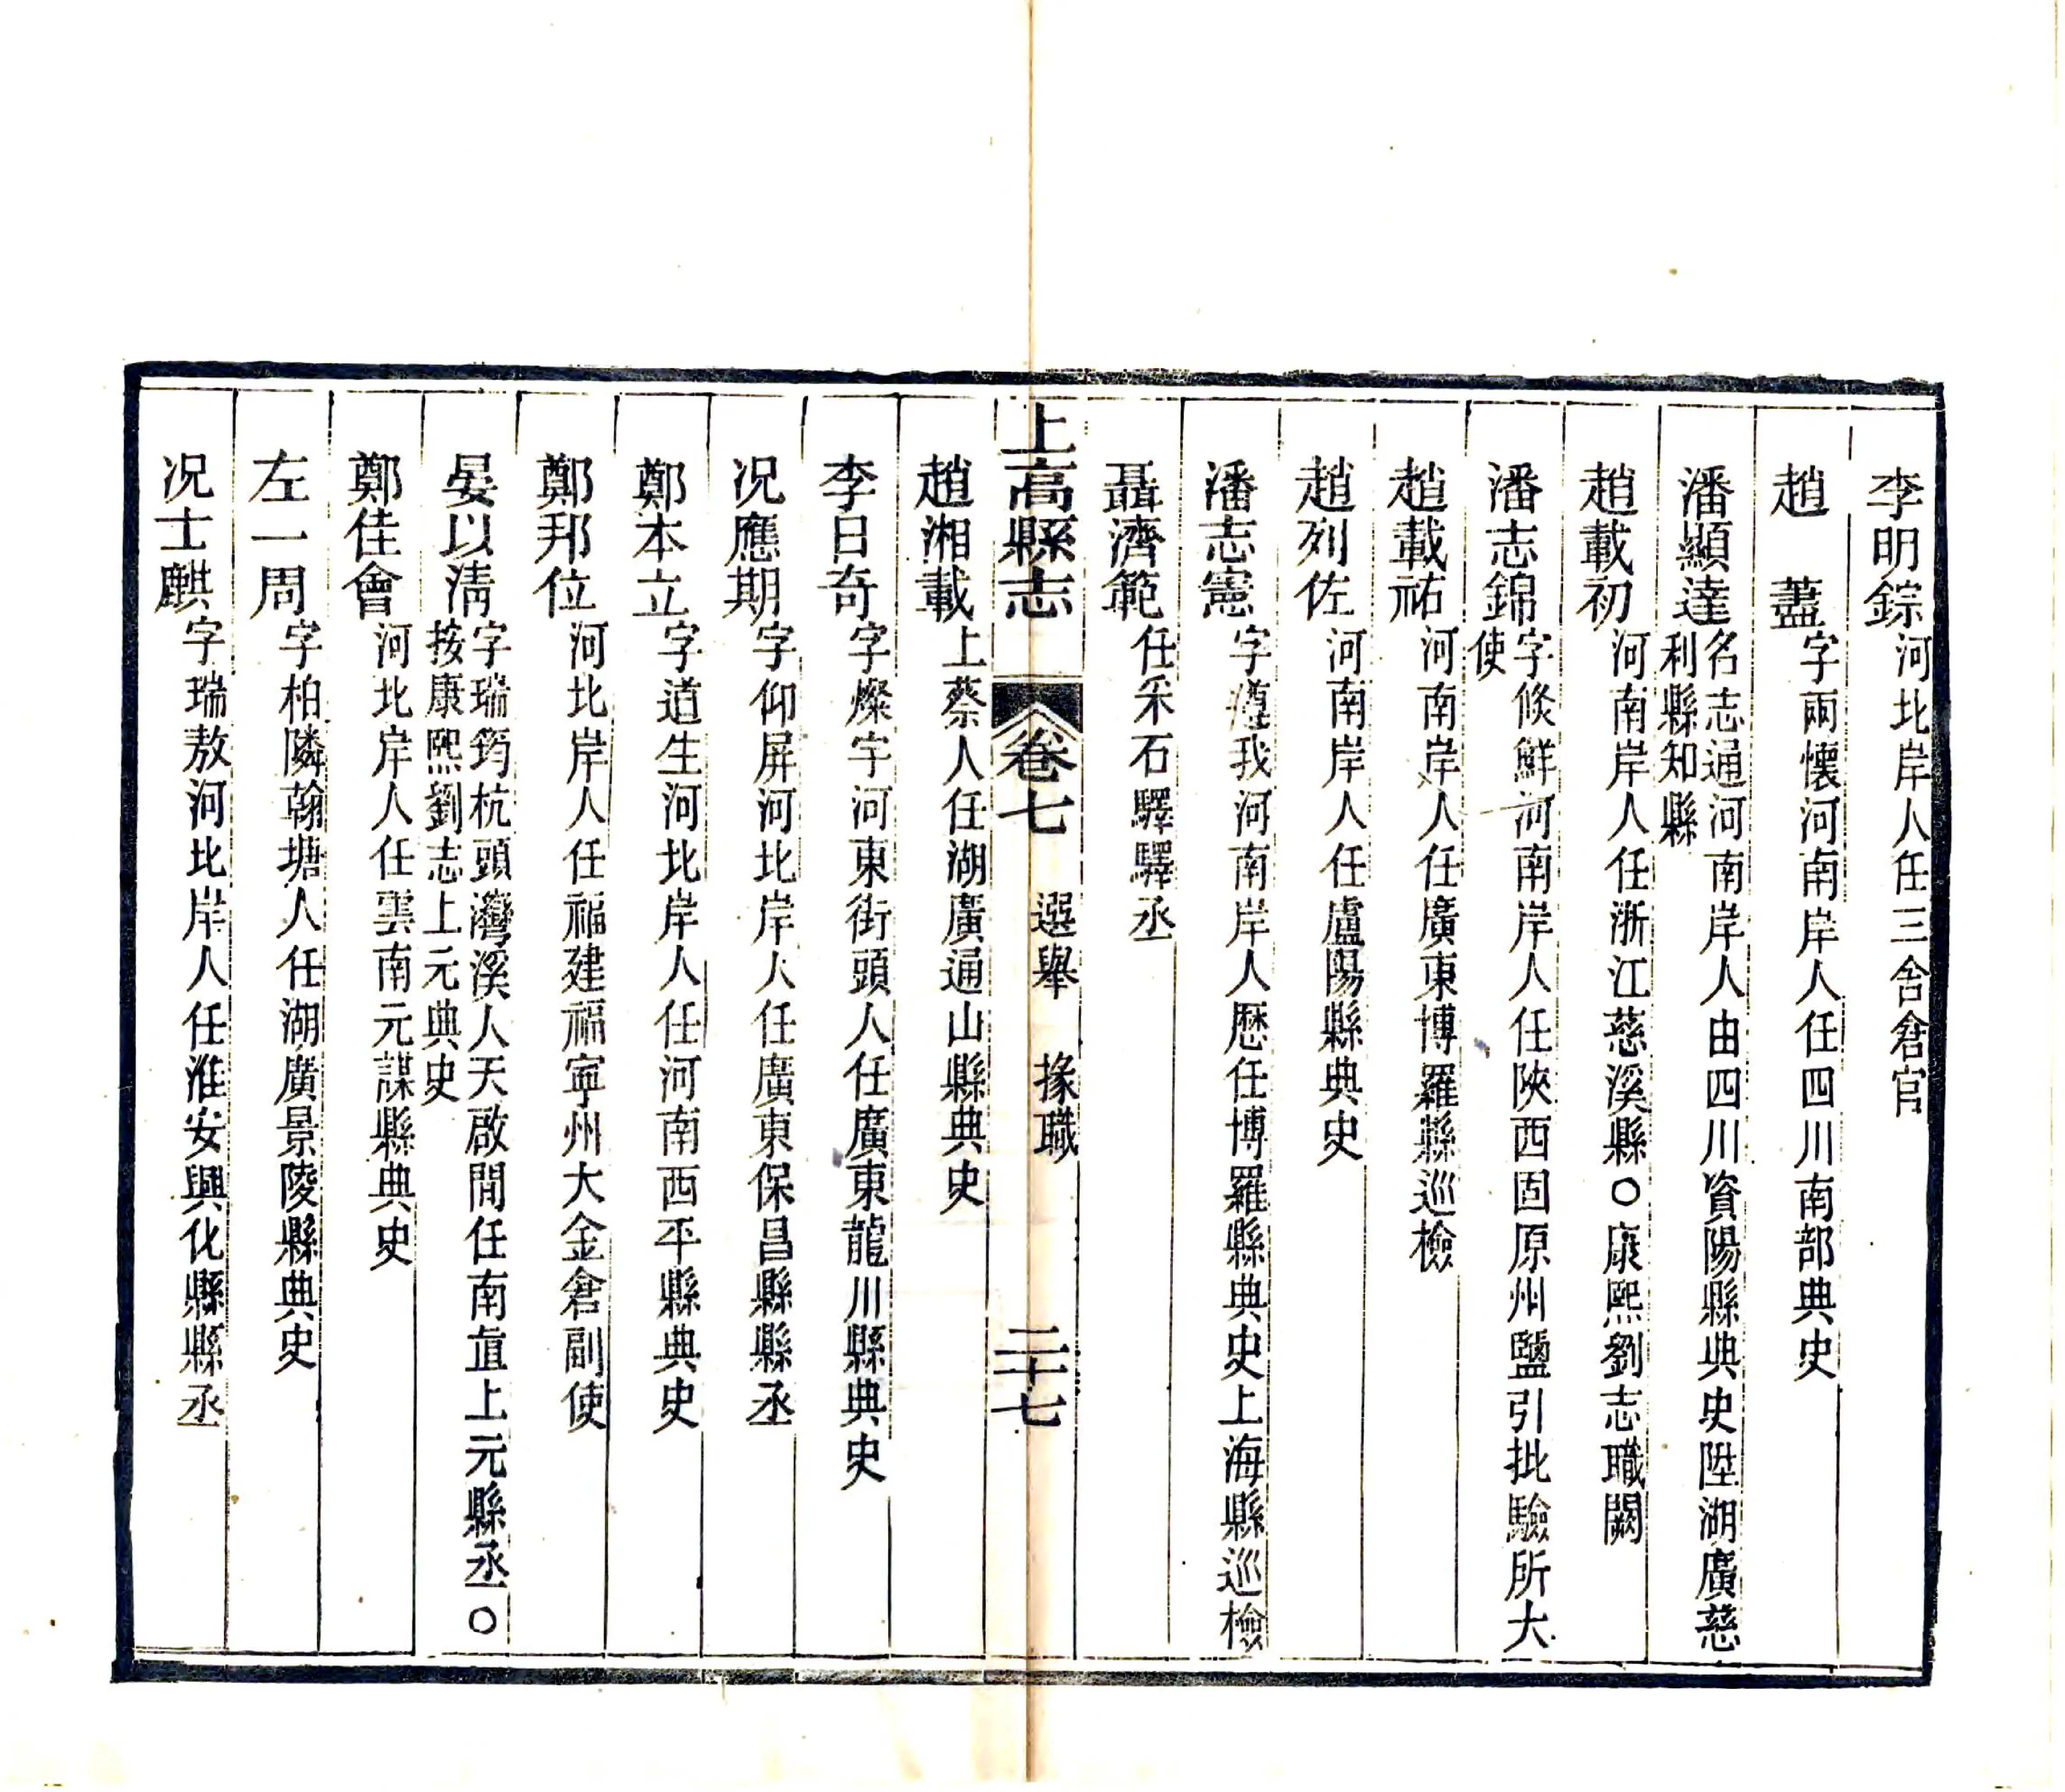 李明錝河北岸人任三舍倉官
趙藎字兩懷河南岸人任四川南部典史
潘顯達名志通河南岸人由四川資陽縣典史陞湖廣慈
利縣知縣
趙載初河南岸人任浙江慈溪縣○康熙劉志職闕
潘志錦字倐鮮河南岸人任陜西固原州鹽引批驗所大
使
趙載祐河南岸人任廣東博羅縣巡檢
趙列佐河南岸人任盧陽縣典史
潘志憲字遵我河南岸人歷任博羅縣典史上海縣巡檢
聶濟範任采石驛驛丞
上高縣志 卷七 選舉 掾職 二十七
趙湘載上蔡人任湖廣通山縣典史
李日奇字燦宇河東街頭人任廣東龍川縣典史
况應期字仰屏河北岸人任廣東保昌縣縣丞
鄭本立字道生河北岸人任河南西平縣典史
鄭邦位河北岸人任福建福寧州大金倉副使
晏以淸字瑞筠杭頭灣溪人天啟間任南直上元縣丞○
按康熙劉志上元典史
鄭佳會河北岸人任雲南元謀縣典史
左一周字柏隣翰塘人任湖廣景陵縣典史
况士麒字瑞敖河北岸人任淮安興化縣縣丞